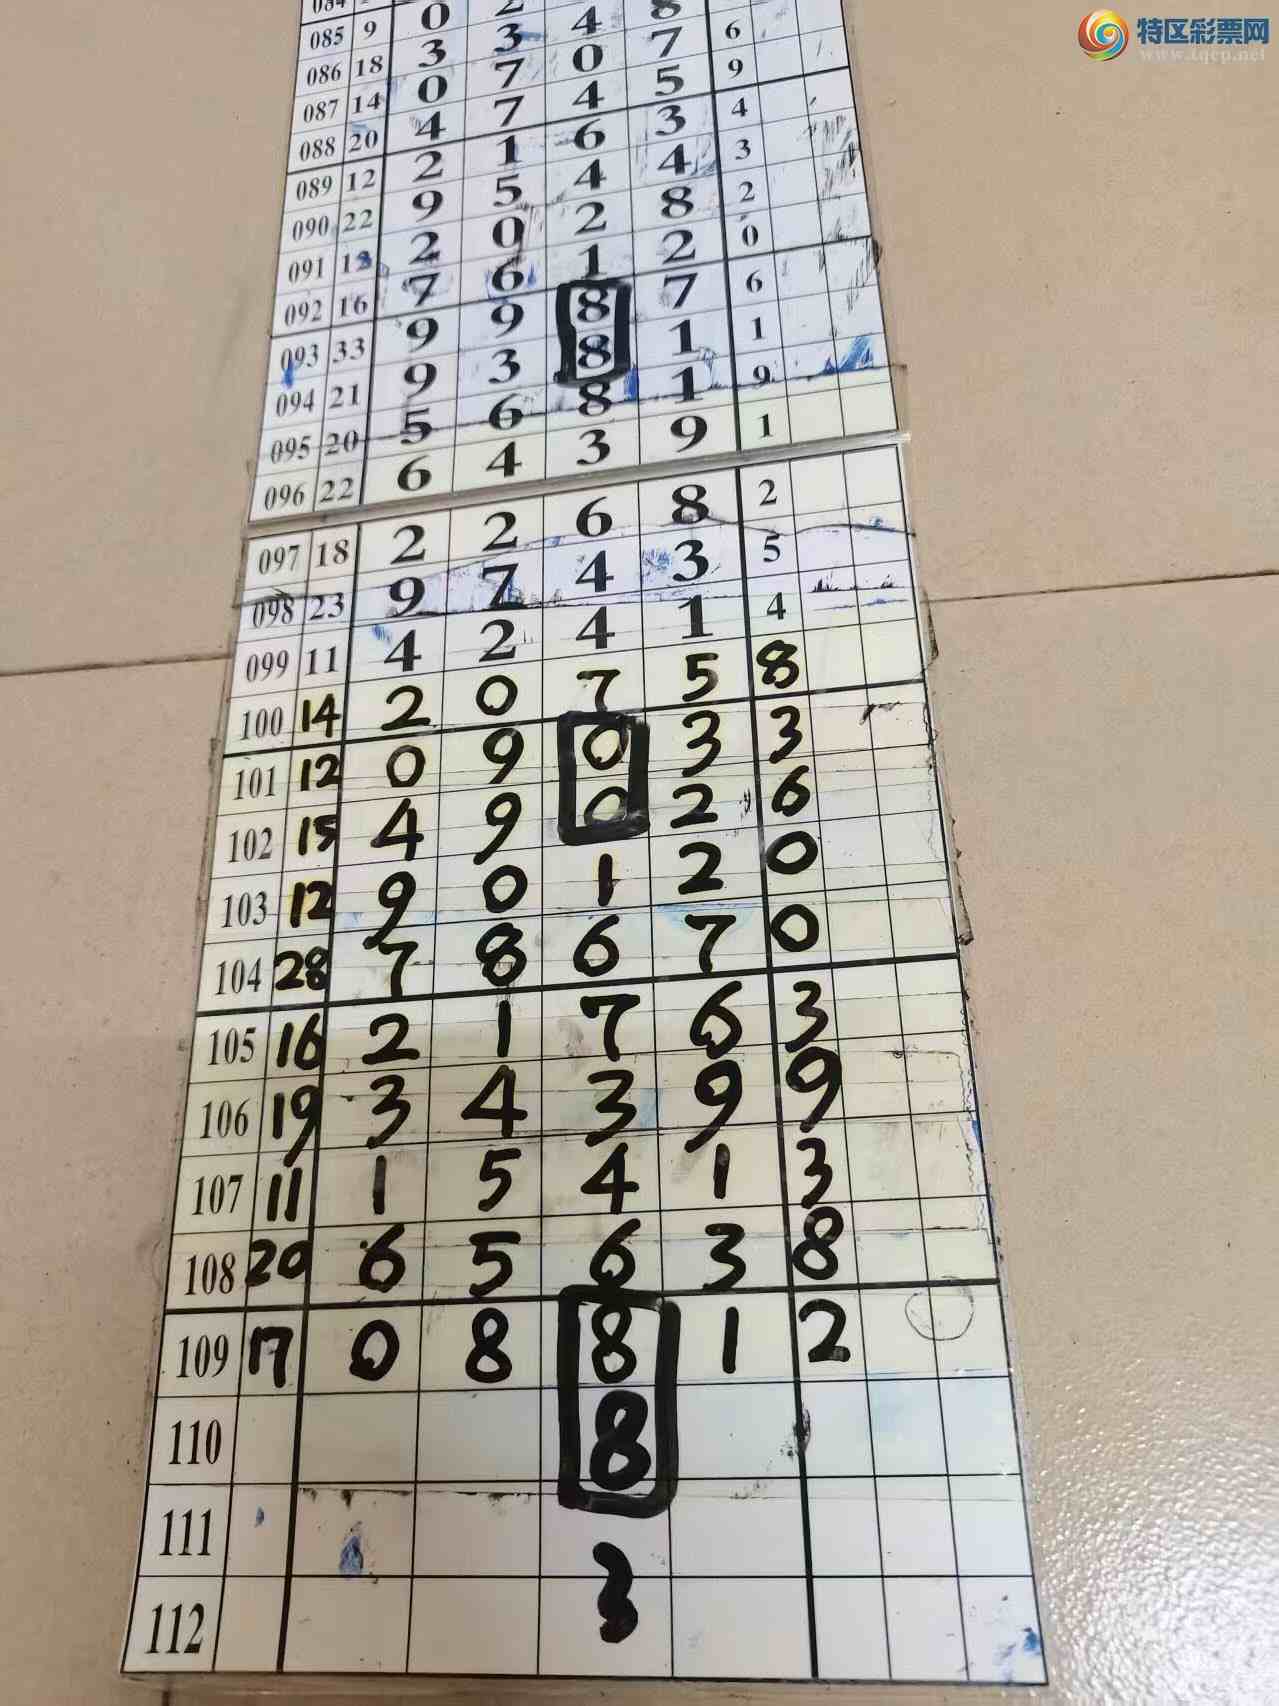 特区彩票网
www.tqcp.net
084
085 9 0 2
086 18 3 3 4 8
087 14 0 7 0 7 6
088 20 4 7 4 5 9
089 12 2 1 6 3 4
090 22 9 5 4 4 3
091 12 2 0 2 8 2
092 16 7 6 1 2 0
093 33 9 9 8 7 6
094 21 9 3 8 1 1
095 20 5 6 8 1 9
096 22 6 4 3 9 1
097 18 2 2 6 8 2
098 23 9 7 4 3 5
099 11 4 2 4 1 4
100 14 2 0 7 5 8
101 12 0 9 0 3 3
102 15 4 9 0 2 6
103 12 9 0 1 2 0
104 28 7 8 6 7 0
105 16 2 1 7 6 3
106 19 3 4 3 9 9
107 11 1 5 4 1 3
108 20 6 5 6 3 8
109 17 0 8 8 1 2
110 8
111
112 3